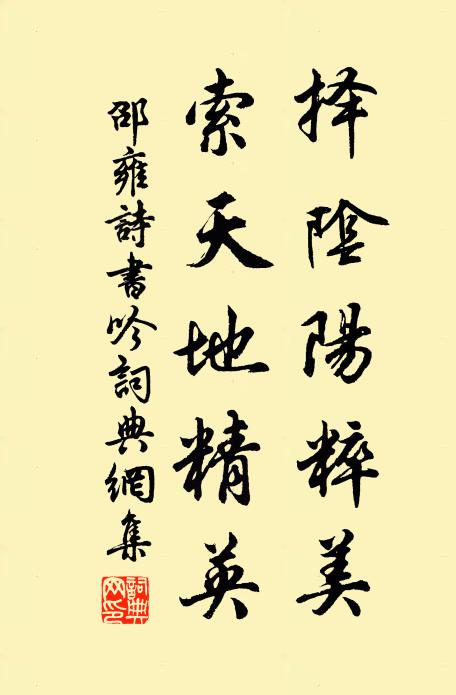 择陰陽粹美
索天地精英
邵雍詩書吟詞典網集
詞典網印